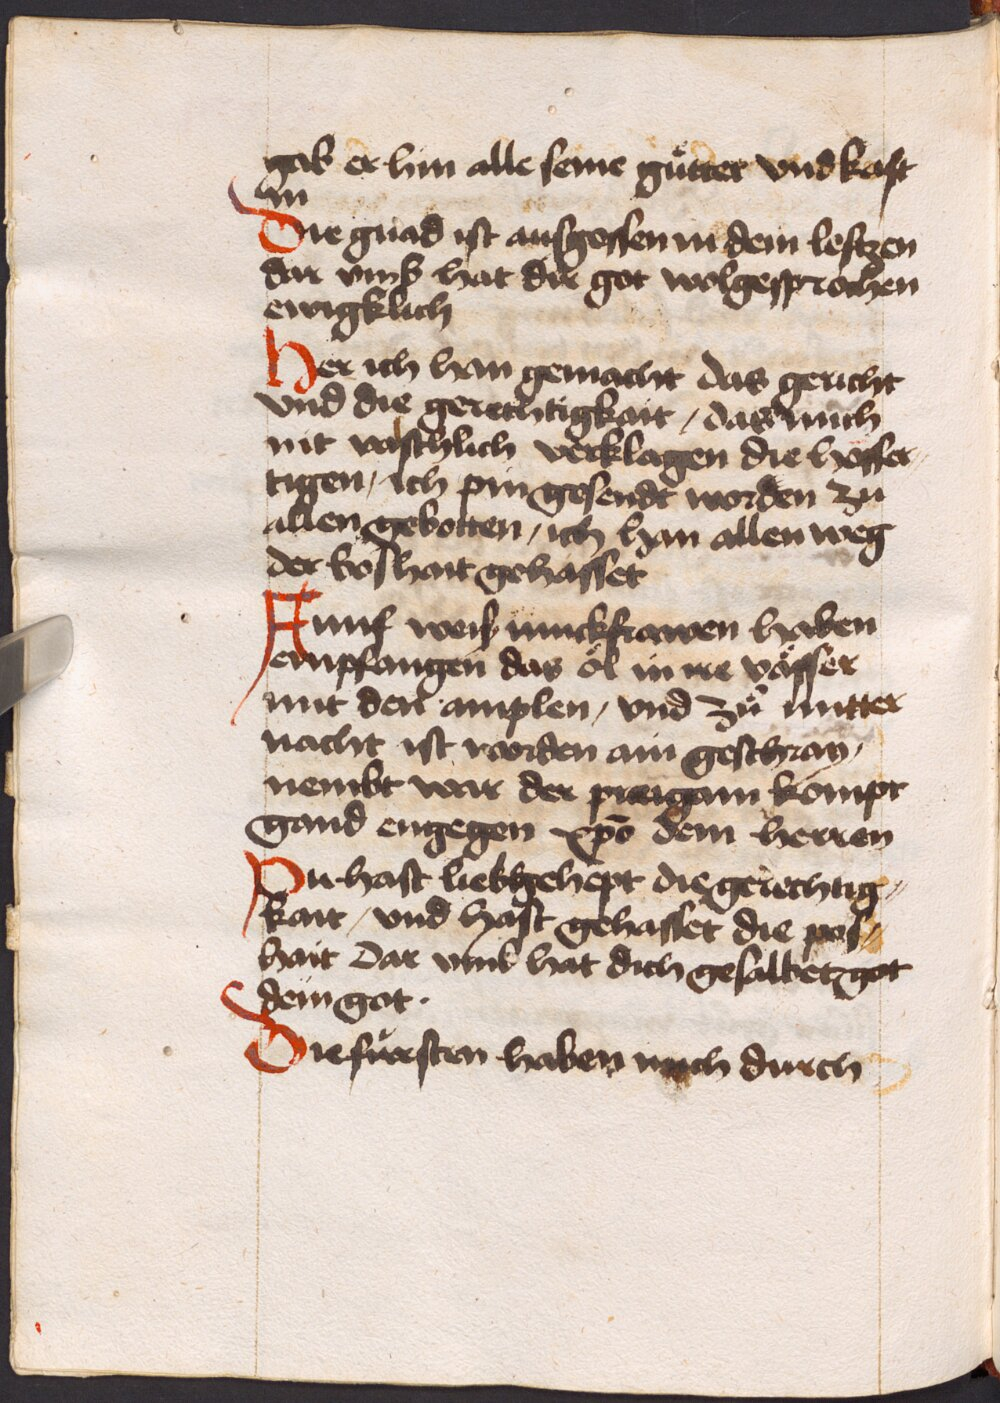 gab er hin alle seine gůtter vnd kaft
in
Die gnad ist ausgossen in dein lefftzen
dar vmb hat dir got wolgesprochen
ewigklich
Her ich han gemacht das gericht
vnd die gerechtigkait / das mich
nit valschlich verklagen die hoffer„
tigen / ich pin gesendt worden zu
allen gebotten / ich han allen weg
der boshait gehasset
Funf weis iunckfrawen haben
empfangen das öl in ire vässer
mit den amplen / vnd zů mitter
nacht ist worden ain geschray /
nembt war der preügam kompt
gand engegen xpo dem herren
Du hast lieb gehept die gerechtig„
kait / vnd hast gehasset die pos„
hait Dar vmb hat dich gesalbet got
dein got .
Die fürsten haben mich durch